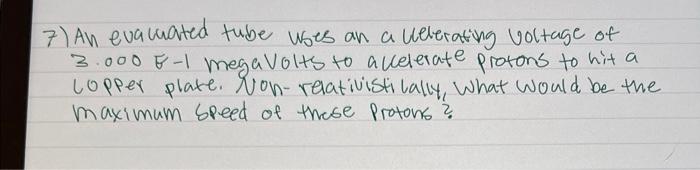 7) An evacuated tube uses an accelerating voltage of
3.000 E-1 megaVolts to accelerate protons to hit a
copper plate. Non-relativistically, what would be the
maximum speed of these protons?